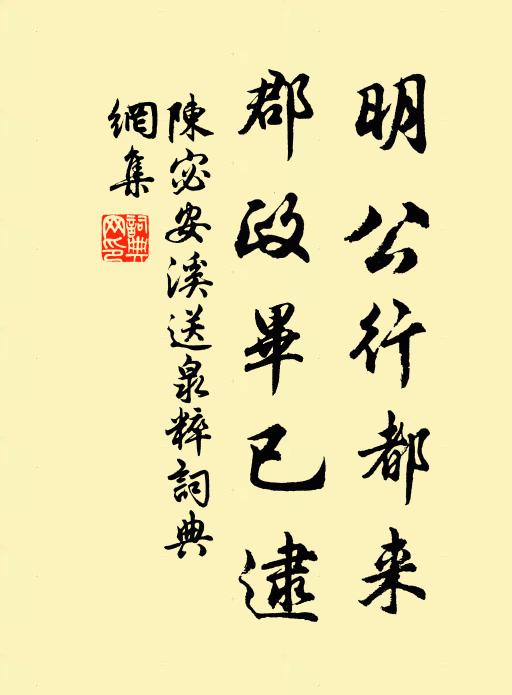 明公行都来
郡政畢已逮
陳宓安溪送泉粹詞典
網集
詞典網印